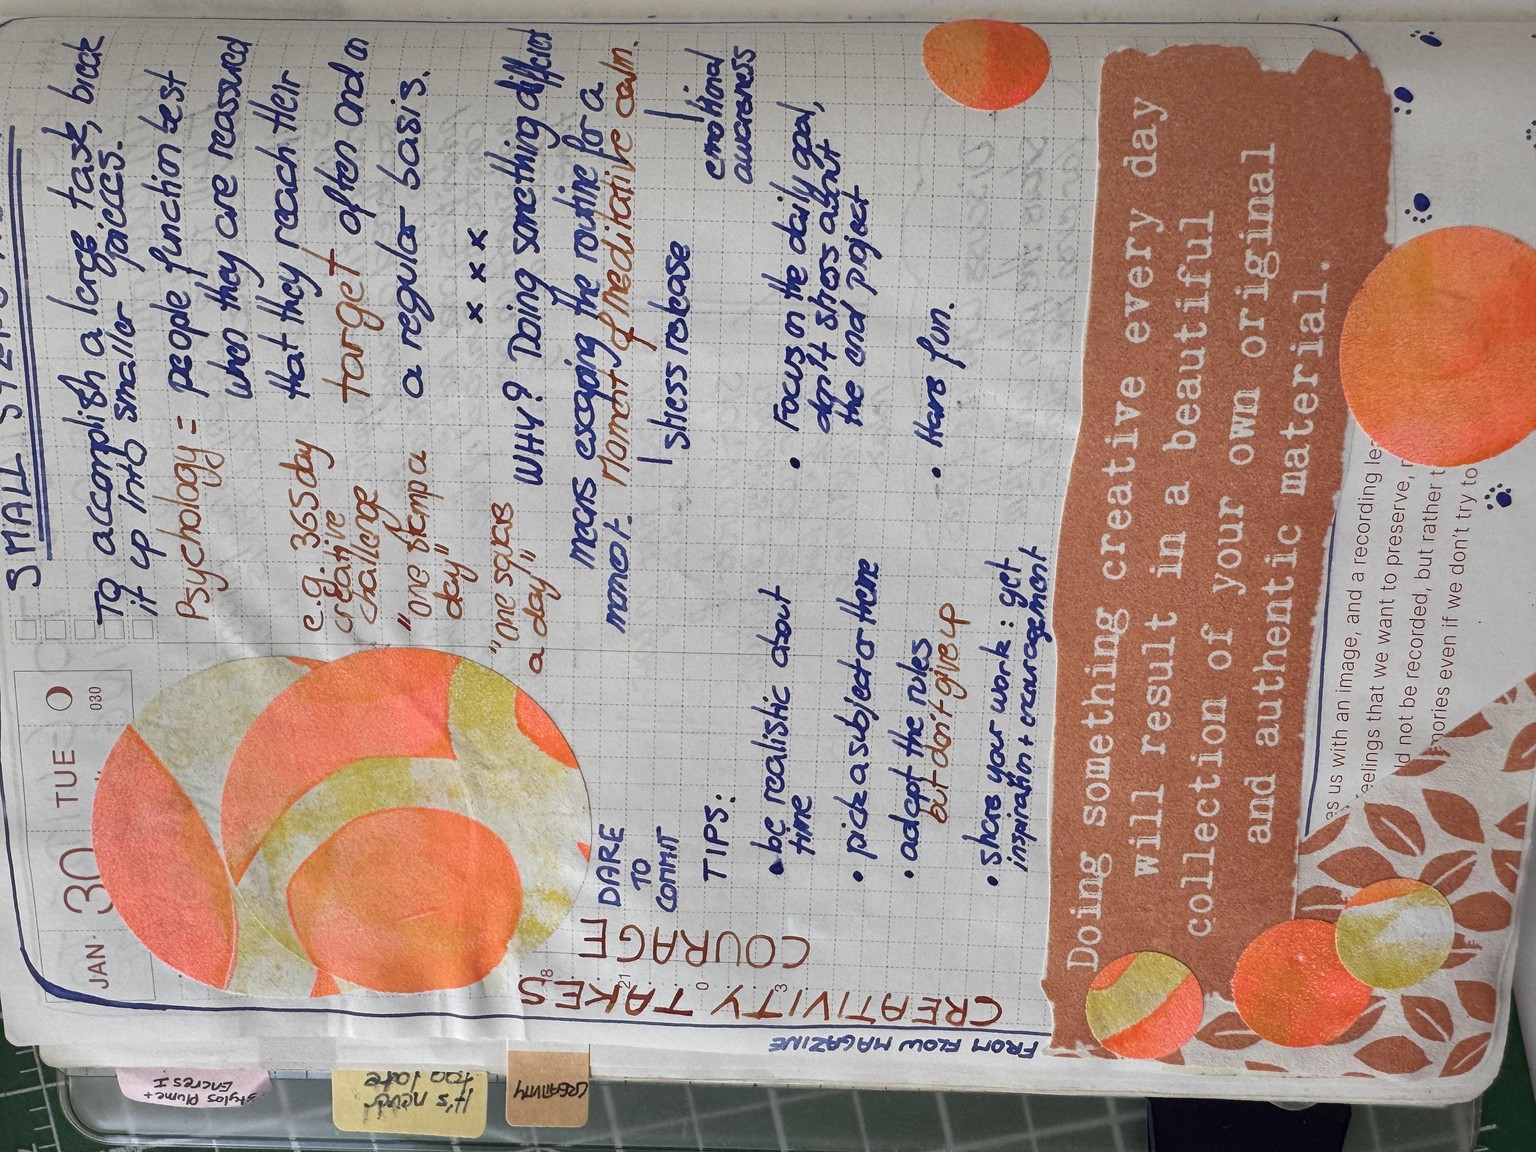 SMALL STEPS
JAN. 30 TUE
030
To accomplish a large task, break
it up into smaller pieces.
Psychology = people function best
when they are reassured
that they reach their
target often and on
a regular basis.
e.g. 365 day
creative
challenge
"one stamp a
day"
"one square
a day"
x x x x
WHY? Doing something different
means escaping the routine for a
moment. Moment of meditative calm.
stress release
emotional
awareness
DARE
TO
COMMIT
TIPS:
• be realistic about
time
• pick a subject or theme
• adapt the rules
but don't give up
• share your work : get
inspiration + encouragement
• Focus on the daily goal,
don't stress about
the end project
• Have fun.
CREATIVITY TAKES
COURAGE
18
21
0
3
FROM FLOW MAGAZINE
Doing something creative every day
will result in a beautiful
collection of your own original
and authentic material.
es us with an image, and a recording le
eelings that we want to preserve,
ld not be recorded, but rather t
mories even if we don't try to
Stylos Plume +
Encres I
It's never
too late
CREATIVITY